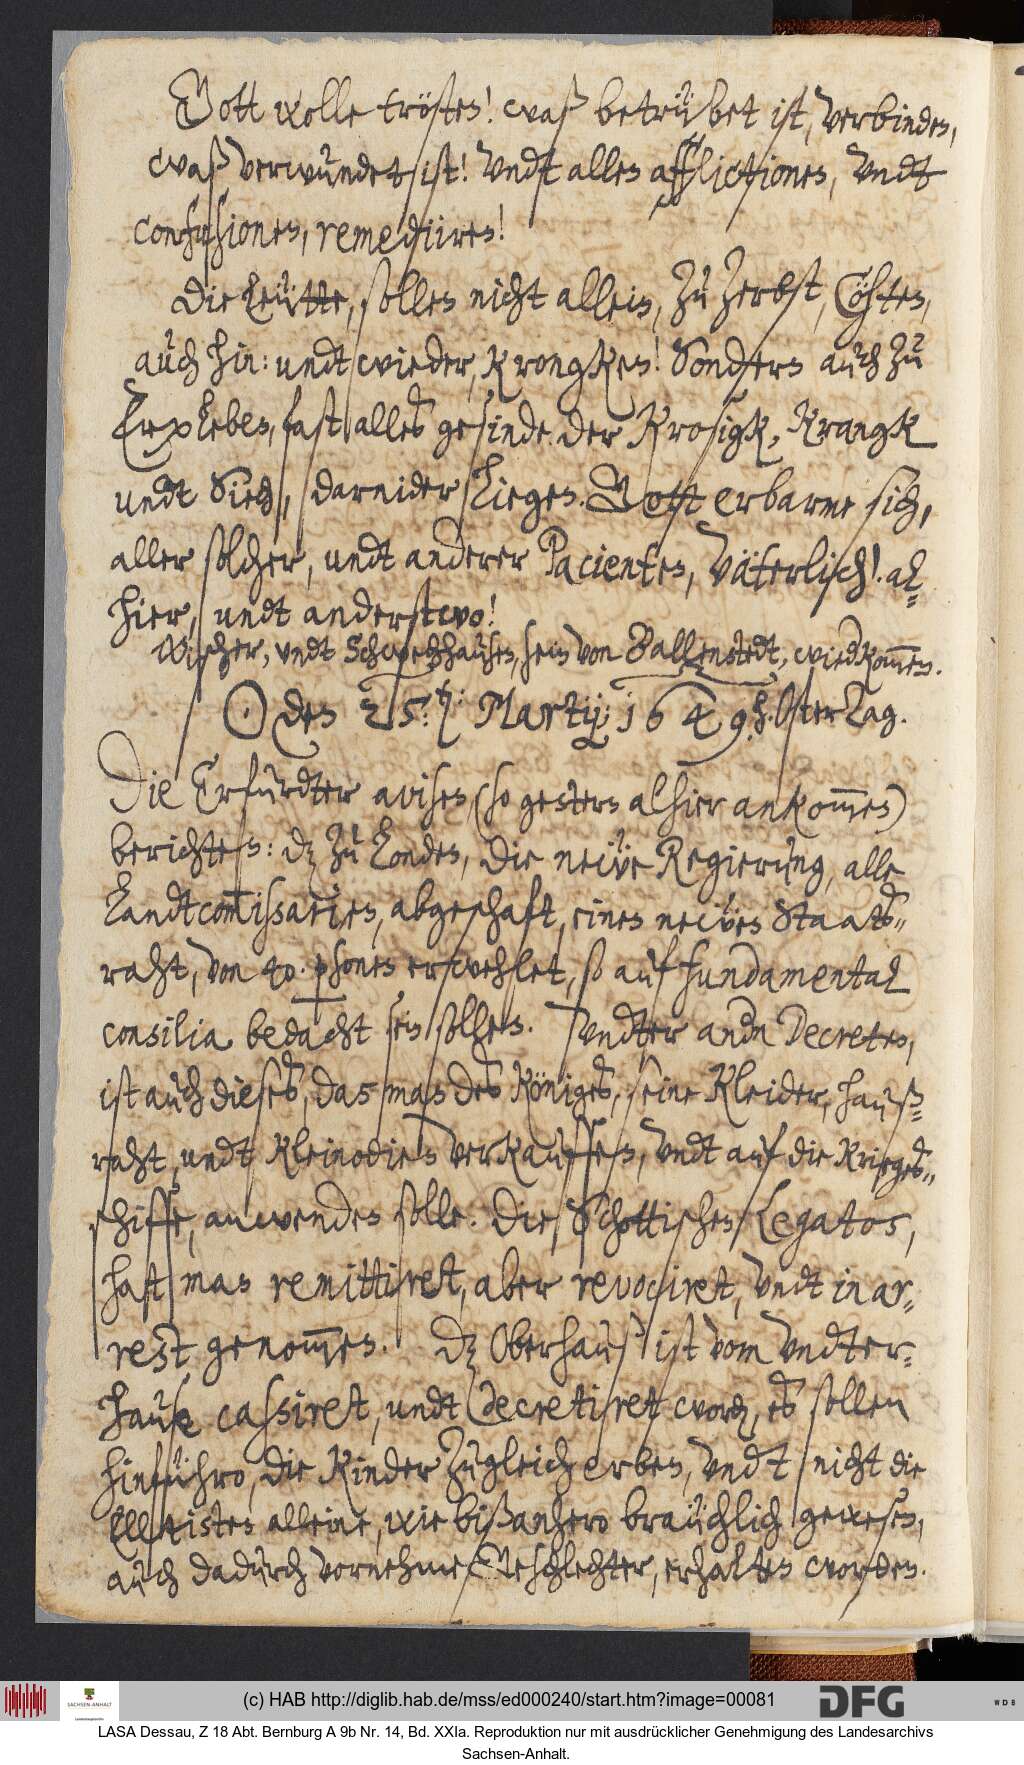 Gott wolle trösten! waß betrübet ist, verbinden,
waß verwundet ist! Undt alles afflictiones, undt
confusiones, remediiren!
Die Leütte, sollen nicht allein, zu Zerbst, Cöhten,
auch hin: undt wieder, krongken! Sondern auch zu
Erxleben, fast alles gesinde der Krosigk, Krangk
undt Siech, darnider liegen. Gott erbarme sich,
aller solcher, undt anderer Pacienten, Väterlich! al¬
hier, undt anderstwo!
Wischer, undt Schwechhausen, sein von Ballenstedt, wiedkom̅en.
☉ den 25.ti: Martij: 1649. h. Oster Tag.
Die Erfurdter avisen, (so gestern alhier ankom̅en)
berichten: dz zu Londen, die neüe Regierung, alle
Landtcom̅issarien, abgeschaft, einen neüen Staats¬
raht, von 40. p̱sonen erwehlet, so auf fundamental
consilia bedacht sein sollen. Undter andn Decreten,
ist auch dieses, das man des Königes, seine Kleider, hauß¬
raht, undt Kleinodien verkauffen, undt auf die Krieges¬
schiffe, anwenden solle. Die Schottischen Legatos,
hatt man remittiret, aber revociret, undt in ar¬
rest genom̅en. Dz Oberhauß ist vom Undter¬
hause cassiret, undt decretiret wordn, es sollen
hinführo, die Kinder zugleich erben, undt nicht die
Elltisten alleine, wie bißanhero braüchlich gewesen,
auch dadurch vornehme Geschlechter, erhalten worden.
(c) HAB http://diglib.hab.de/mss/ed000240/start.htm?image=00081
SACHSEN-ANHALT
DFG
WDB
LASA Dessau, Z 18 Abt. Bernburg A 9b Nr. 14, Bd. XXIa. Reproduktion nur mit ausdrücklicher Genehmigung des Landesarchivs
Sachsen-Anhalt.